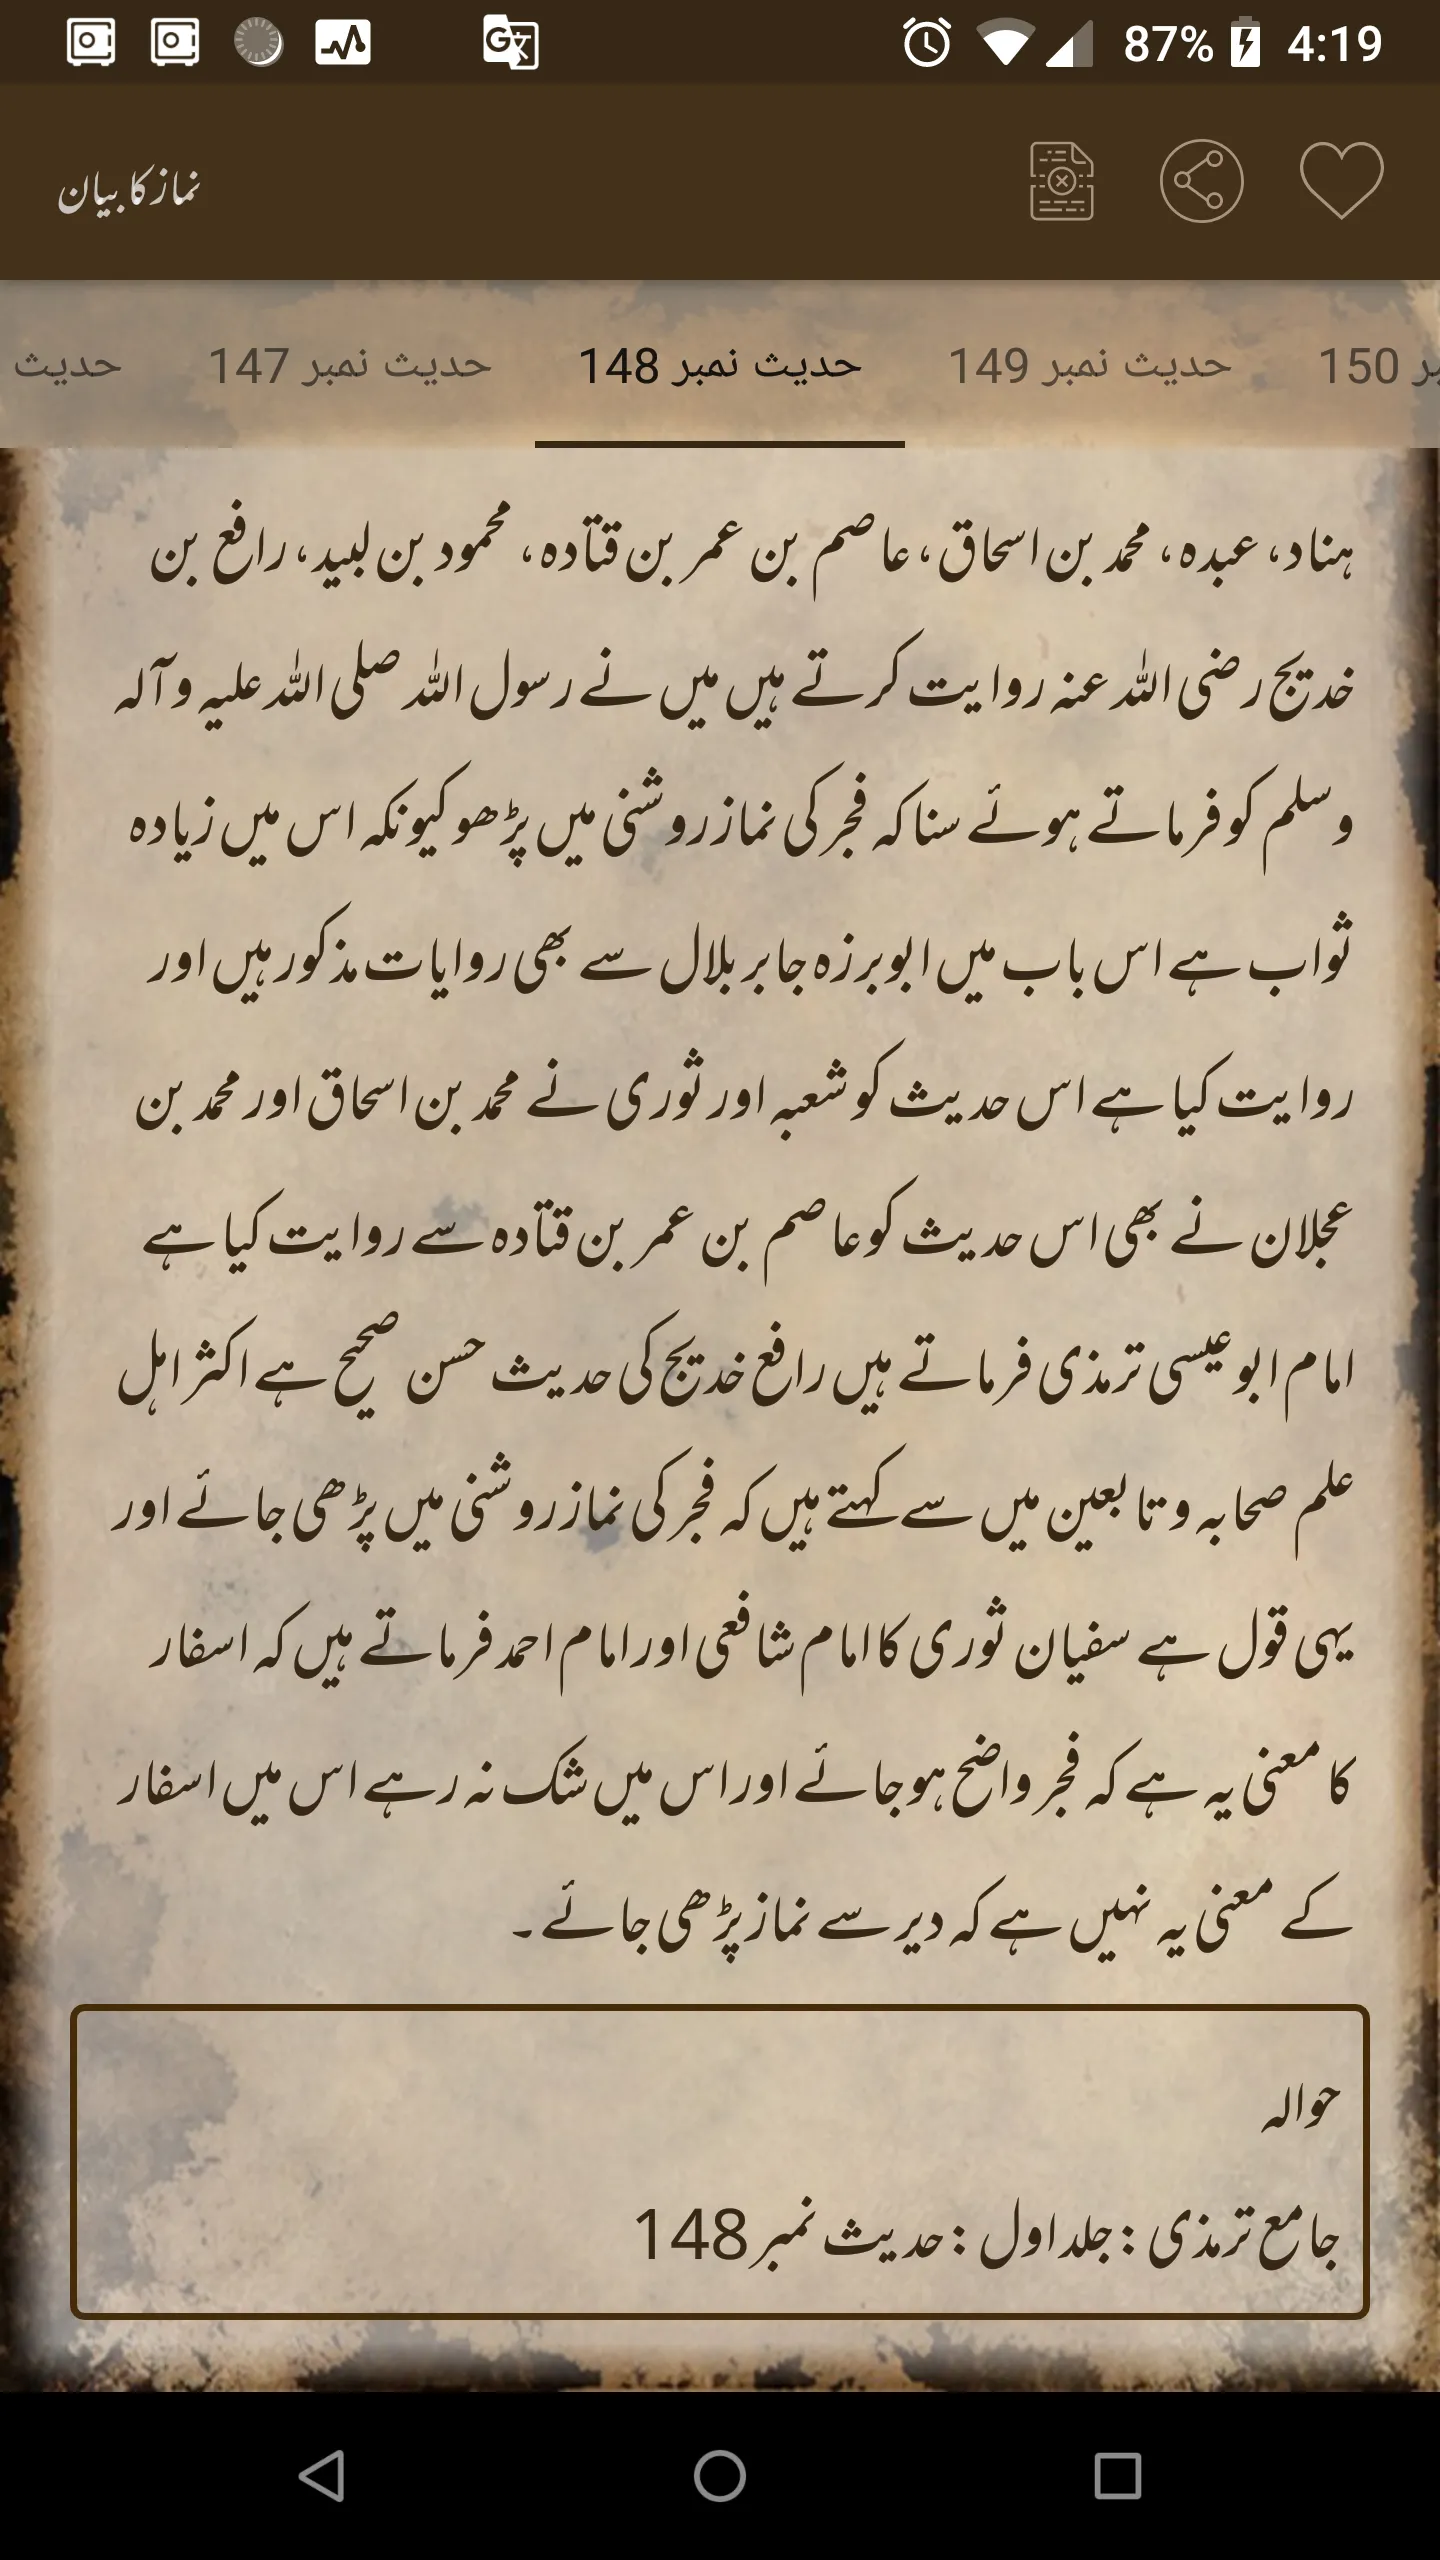 87% 4:19
نماز کا بیان
حدیث
حدیث نمبر 147
حدیث نمبر 148
حدیث نمبر 149
بر 150
ہناد، عبدہ، محمد بن اسحاق، عاصم بن عمر بن قتادہ، محمود بن لبید، رافع بن
خدیج رضی اللہ عنہ روایت کرتے ہیں میں نے رسول اللہ صلی اللہ علیہ وآلہ
وسلم کو فرماتے ہوئے سنا کہ فجر کی نماز روشنی میں پڑھو کیونکہ اس میں زیادہ
ثواب ہے اس باب میں ابوبرزہ جابر بلال سے بھی روایات مذکور ہیں اور
روایت کیا ہے اس حدیث کو شعبہ اور ثوری نے محمد بن اسحاق اور محمد بن
عجلان نے بھی اس حدیث کو عاصم بن عمر بن قتادہ سے روایت کیا ہے
امام ابوعیسی ترمذی فرماتے ہیں رافع خدیج کی حدیث حسن صحیح ہے اکثر اہل
علم صحابہ و تابعین میں سے کہتے ہیں کہ فجر کی نماز روشنی میں پڑھی جائے اور
یہی قول ہے سفیان ثوری کا امام شافعی اور امام احمد فرماتے ہیں کہ اسفار
کا معنی یہ ہے کہ فجر واضح ہو جائے اور اس میں شک نہ رہے اس میں اسفار
کے معنی یہ نہیں ہے کہ دیر سے نماز پڑھی جائے۔
حوالہ
جامع ترمذی : جلد اول : حدیث نمبر 148